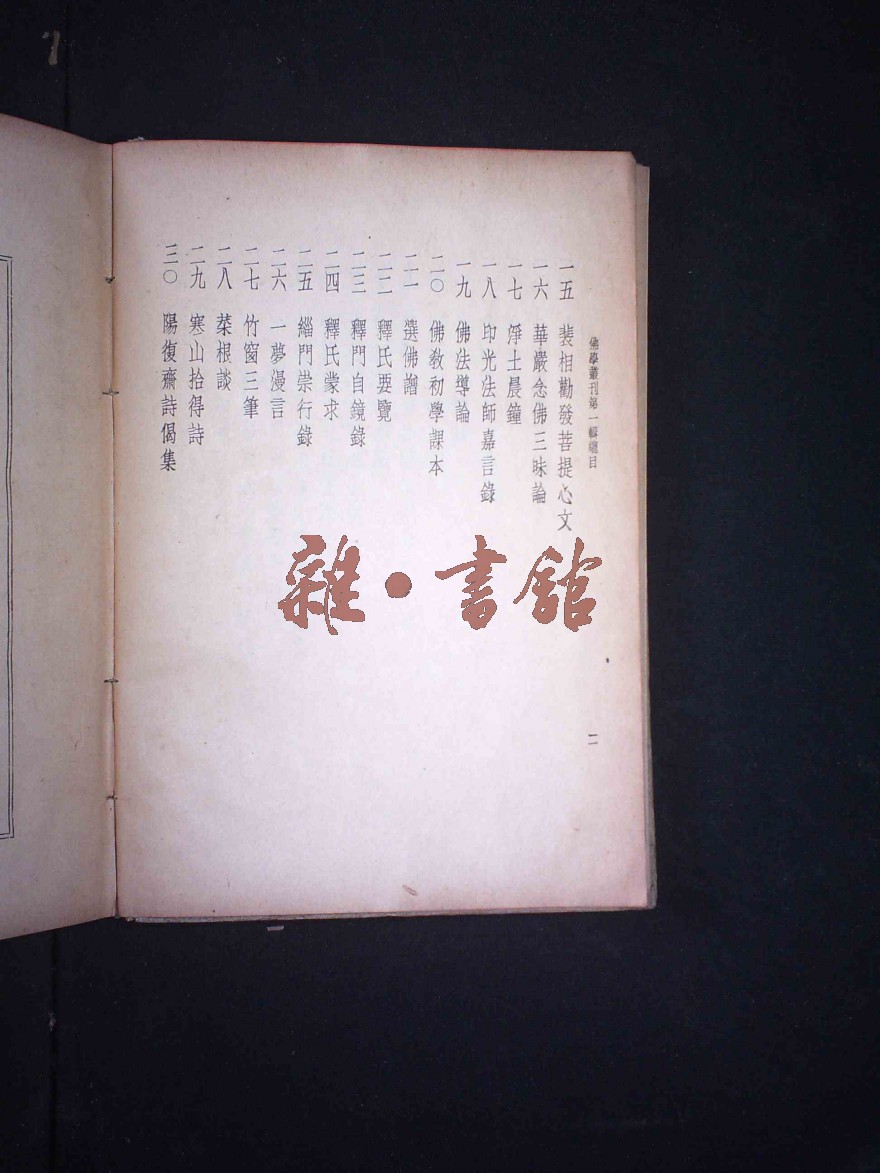 佛學叢刊第一輯總目
一五 裴相勸發菩提心文
一六 華嚴念佛三昧論
一七 淨土晨鐘
一八 印光法師嘉言錄
一九 佛法導論
二〇 佛教初學課本
二一 選佛譜
二二 釋氏要覽
二三 釋門自鏡錄
二四 釋氏蒙求
二五 緇門崇行錄
二六 一夢漫言
二七 竹窗三筆
二八 菜根談
二九 寒山拾得詩
三〇 陽復齋詩偈集
二
雜·書館